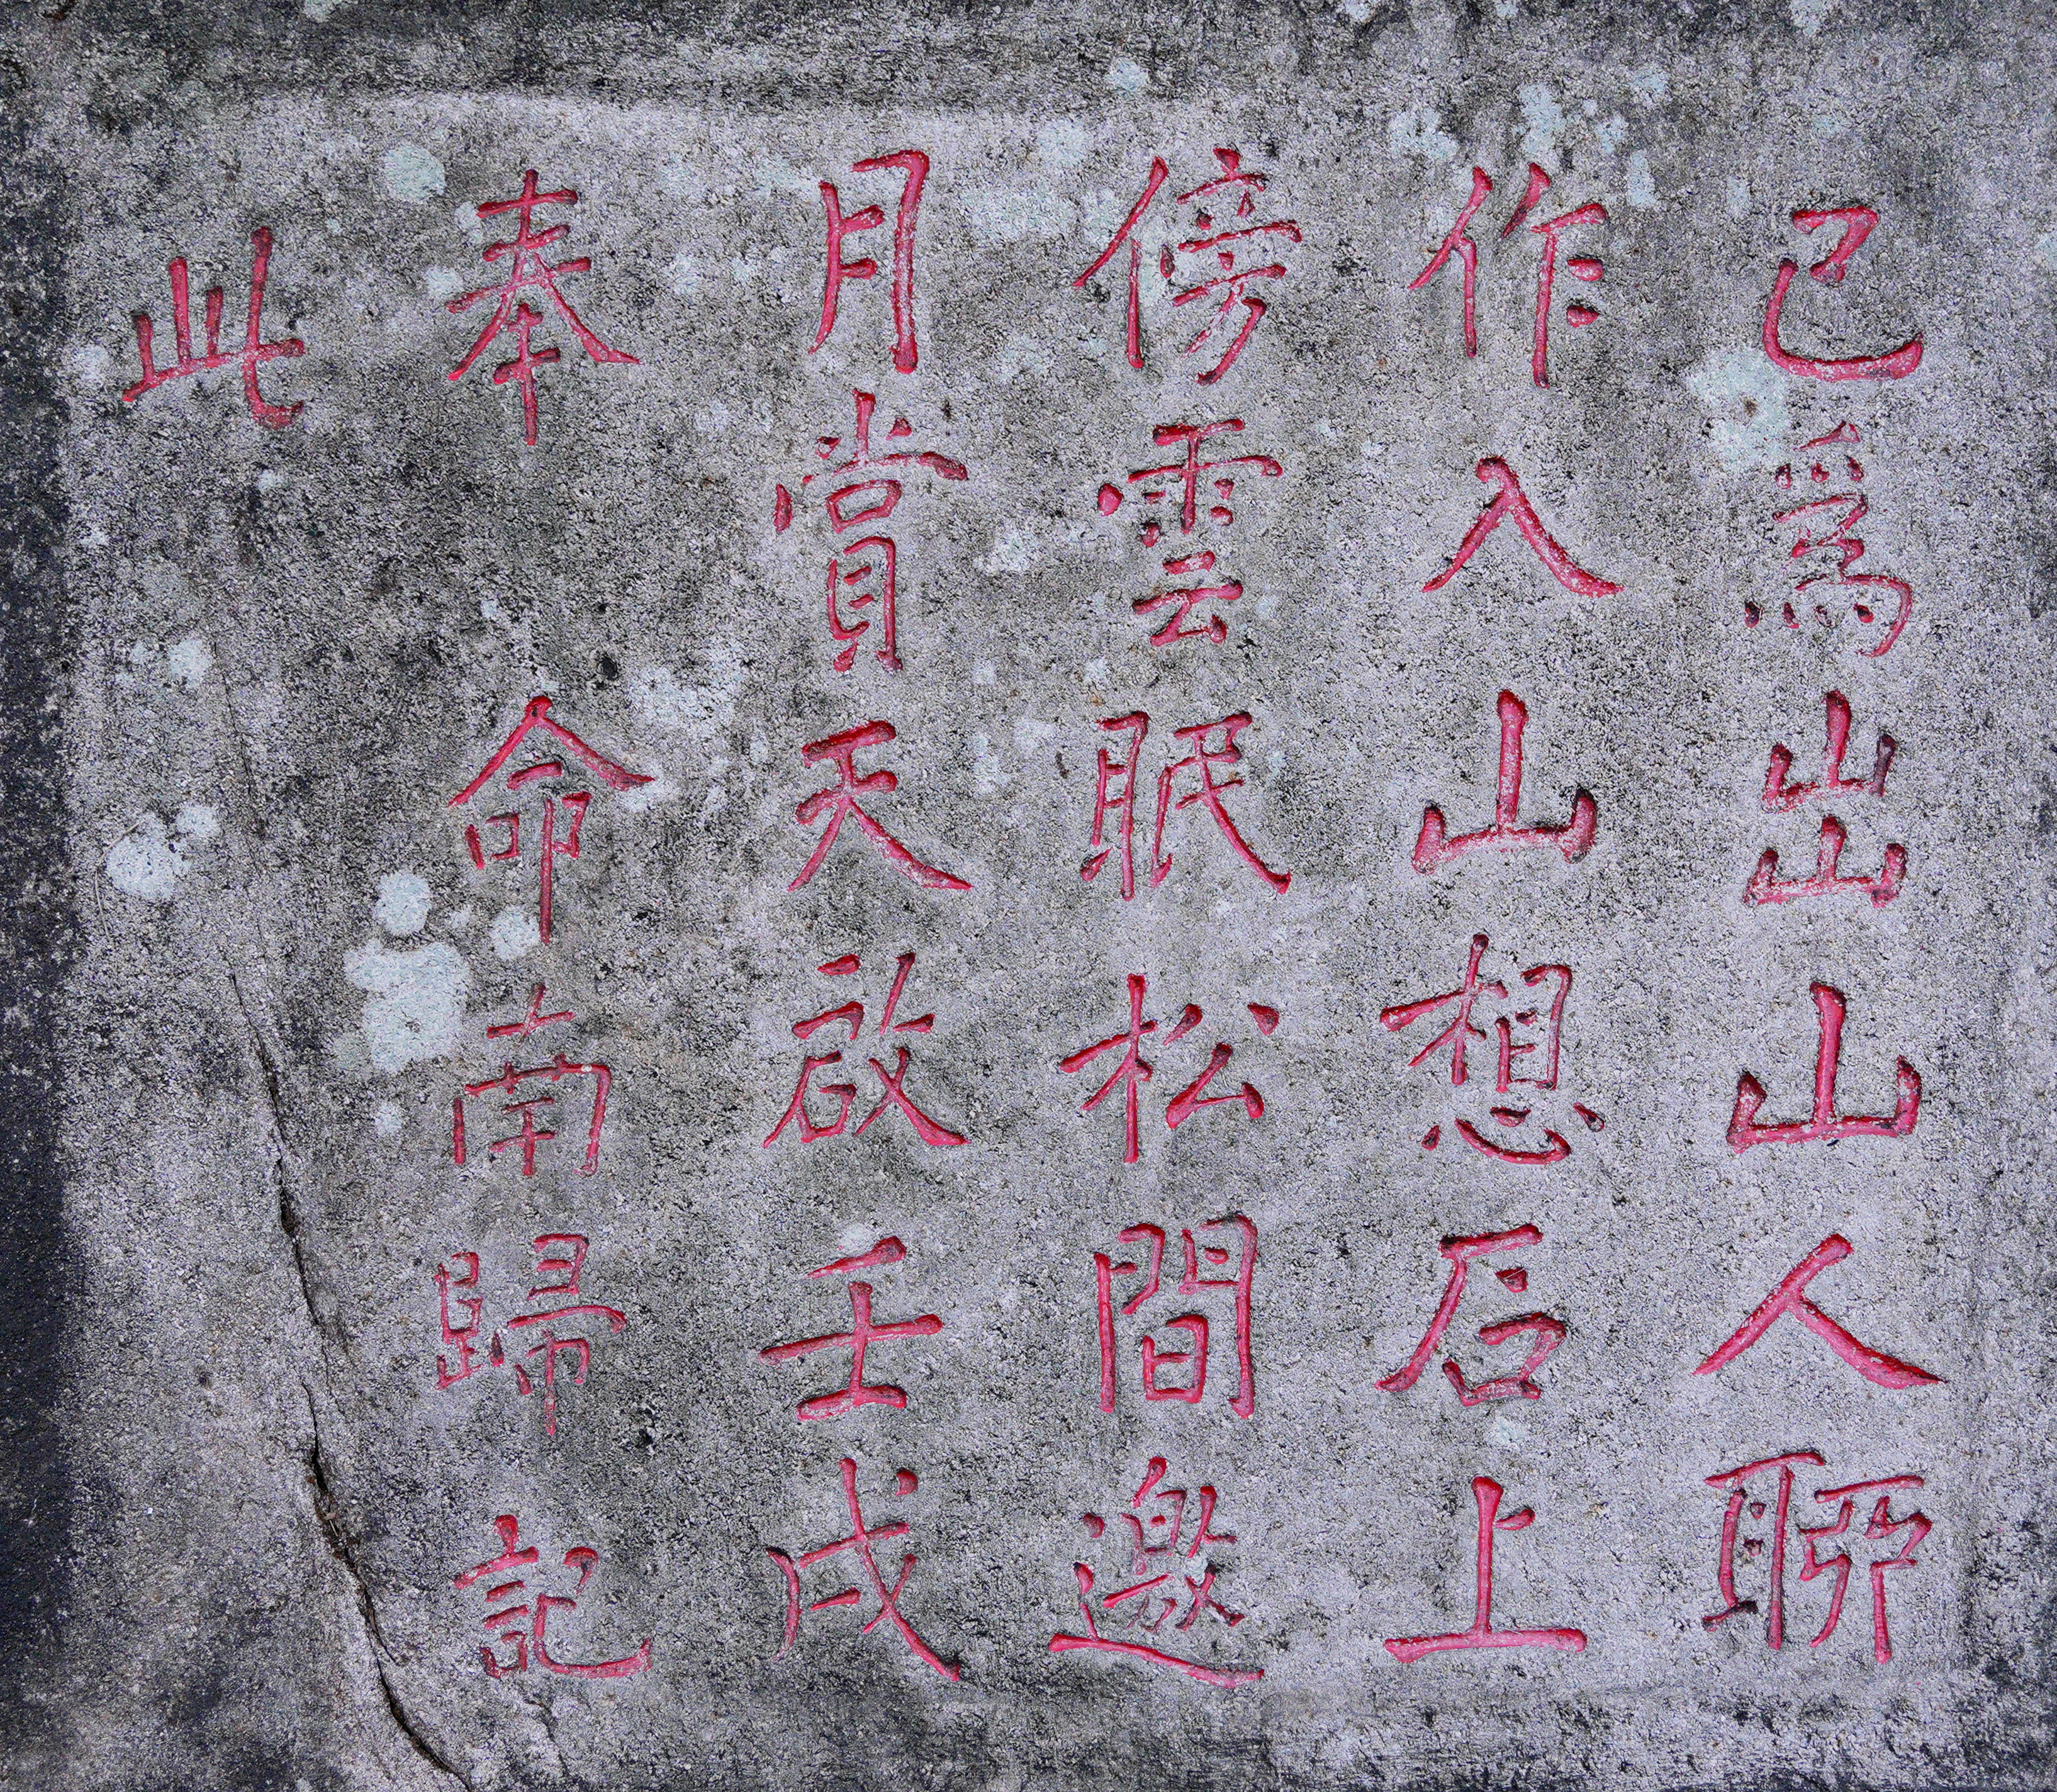 已爲出山人聊
作入山想石上
傍雲眠松間邀
月賞天啟壬戌
奉 命南歸記
此